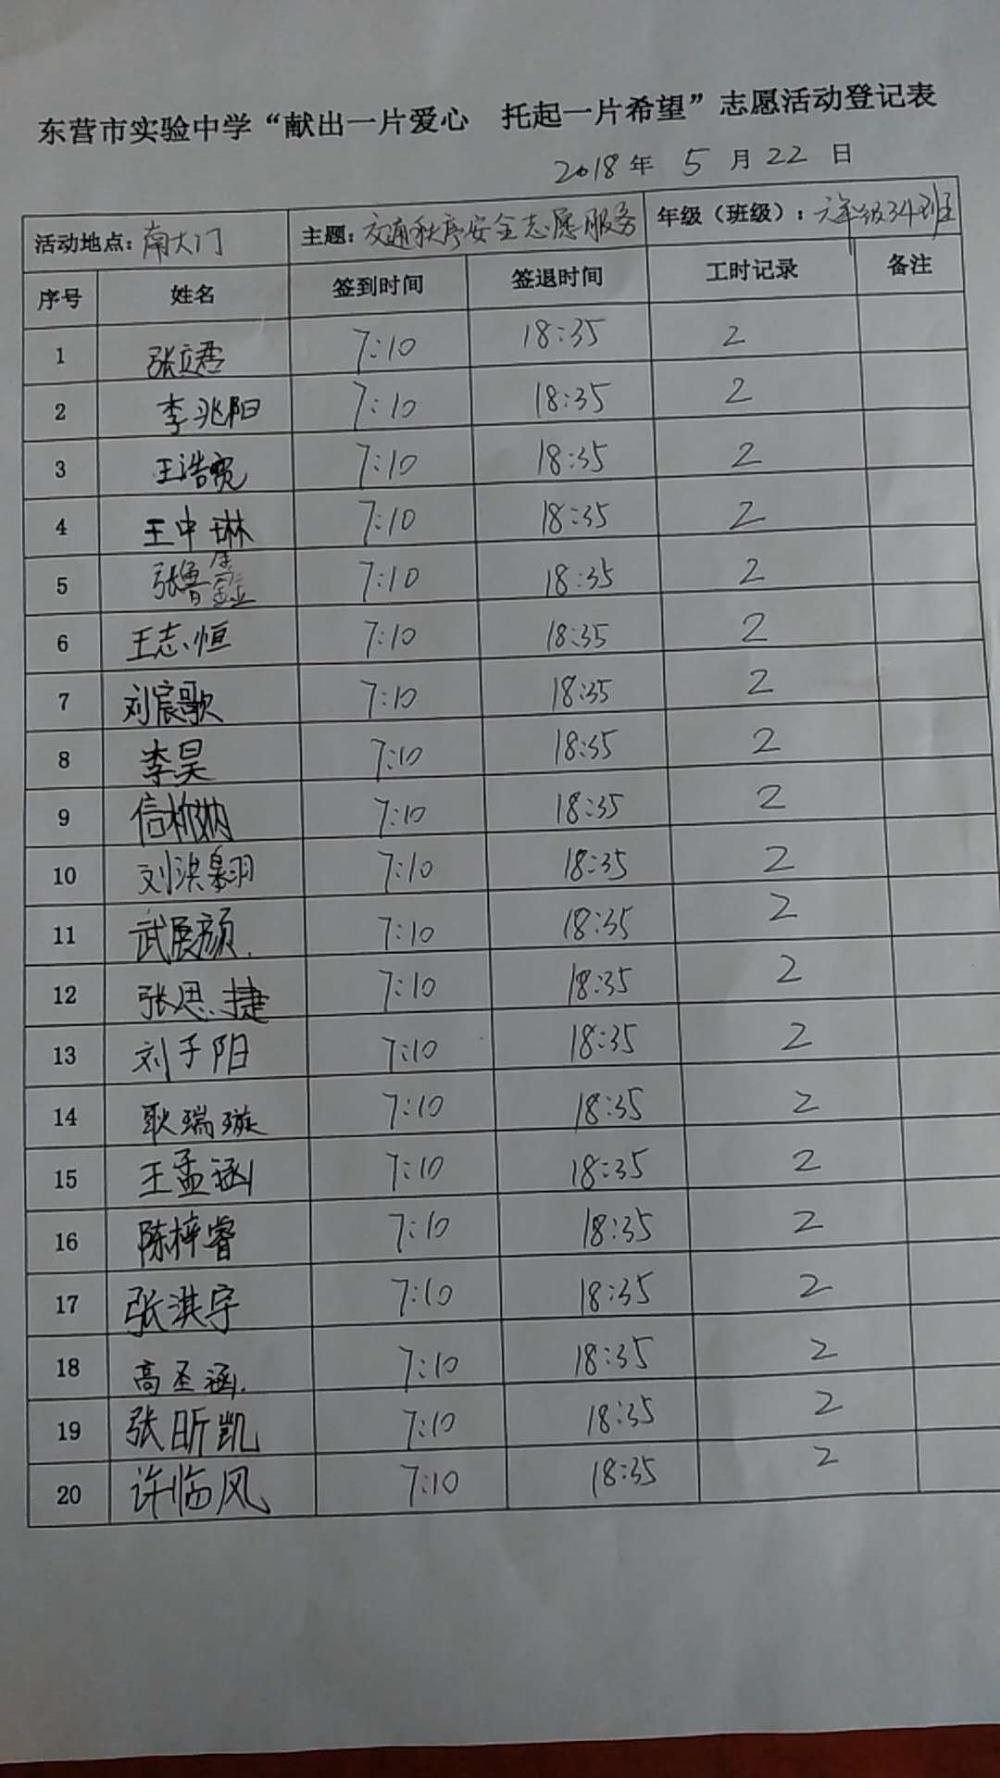 东营市实验中学“献出一片爱心 托起一片希望”志愿活动登记表
2018年 5月22日
活动地点：南大门 主题：交通秩序安全志愿服务 年级（班级）：六年级34班
序号 姓名 签到时间 签退时间 工时记录 备注
1 张立君 7:10 18:35 2
2 李兆阳 7:10 18:35 2
3 王浩宽 7:10 18:35 2
4 王中琳 7:10 18:35 2
5 张鲁鑫 7:10 18:35 2
6 王志恒 7:10 18:35 2
7 刘宸歌 7:10 18:35 2
8 李昊 7:10 18:35 2
9 信 7:10 18:35 2
10 刘洪 7:10 18:35 2
11 武 7:10 18:35 2
12 张思捷 7:10 18:35 2
13 刘子阳 7:10 18:35 2
14 耿瑞璇 7:10 18:35 2
15 王孟涵 7:10 18:35 2
16 陈梓睿 7:10 18:35 2
17 张淇宇 7:10 18:35 2
18 高圣涵. 7:10 18:35 2
19 张昕凯 7:10 18:35 2
20 许临风 7:10 18:35 2